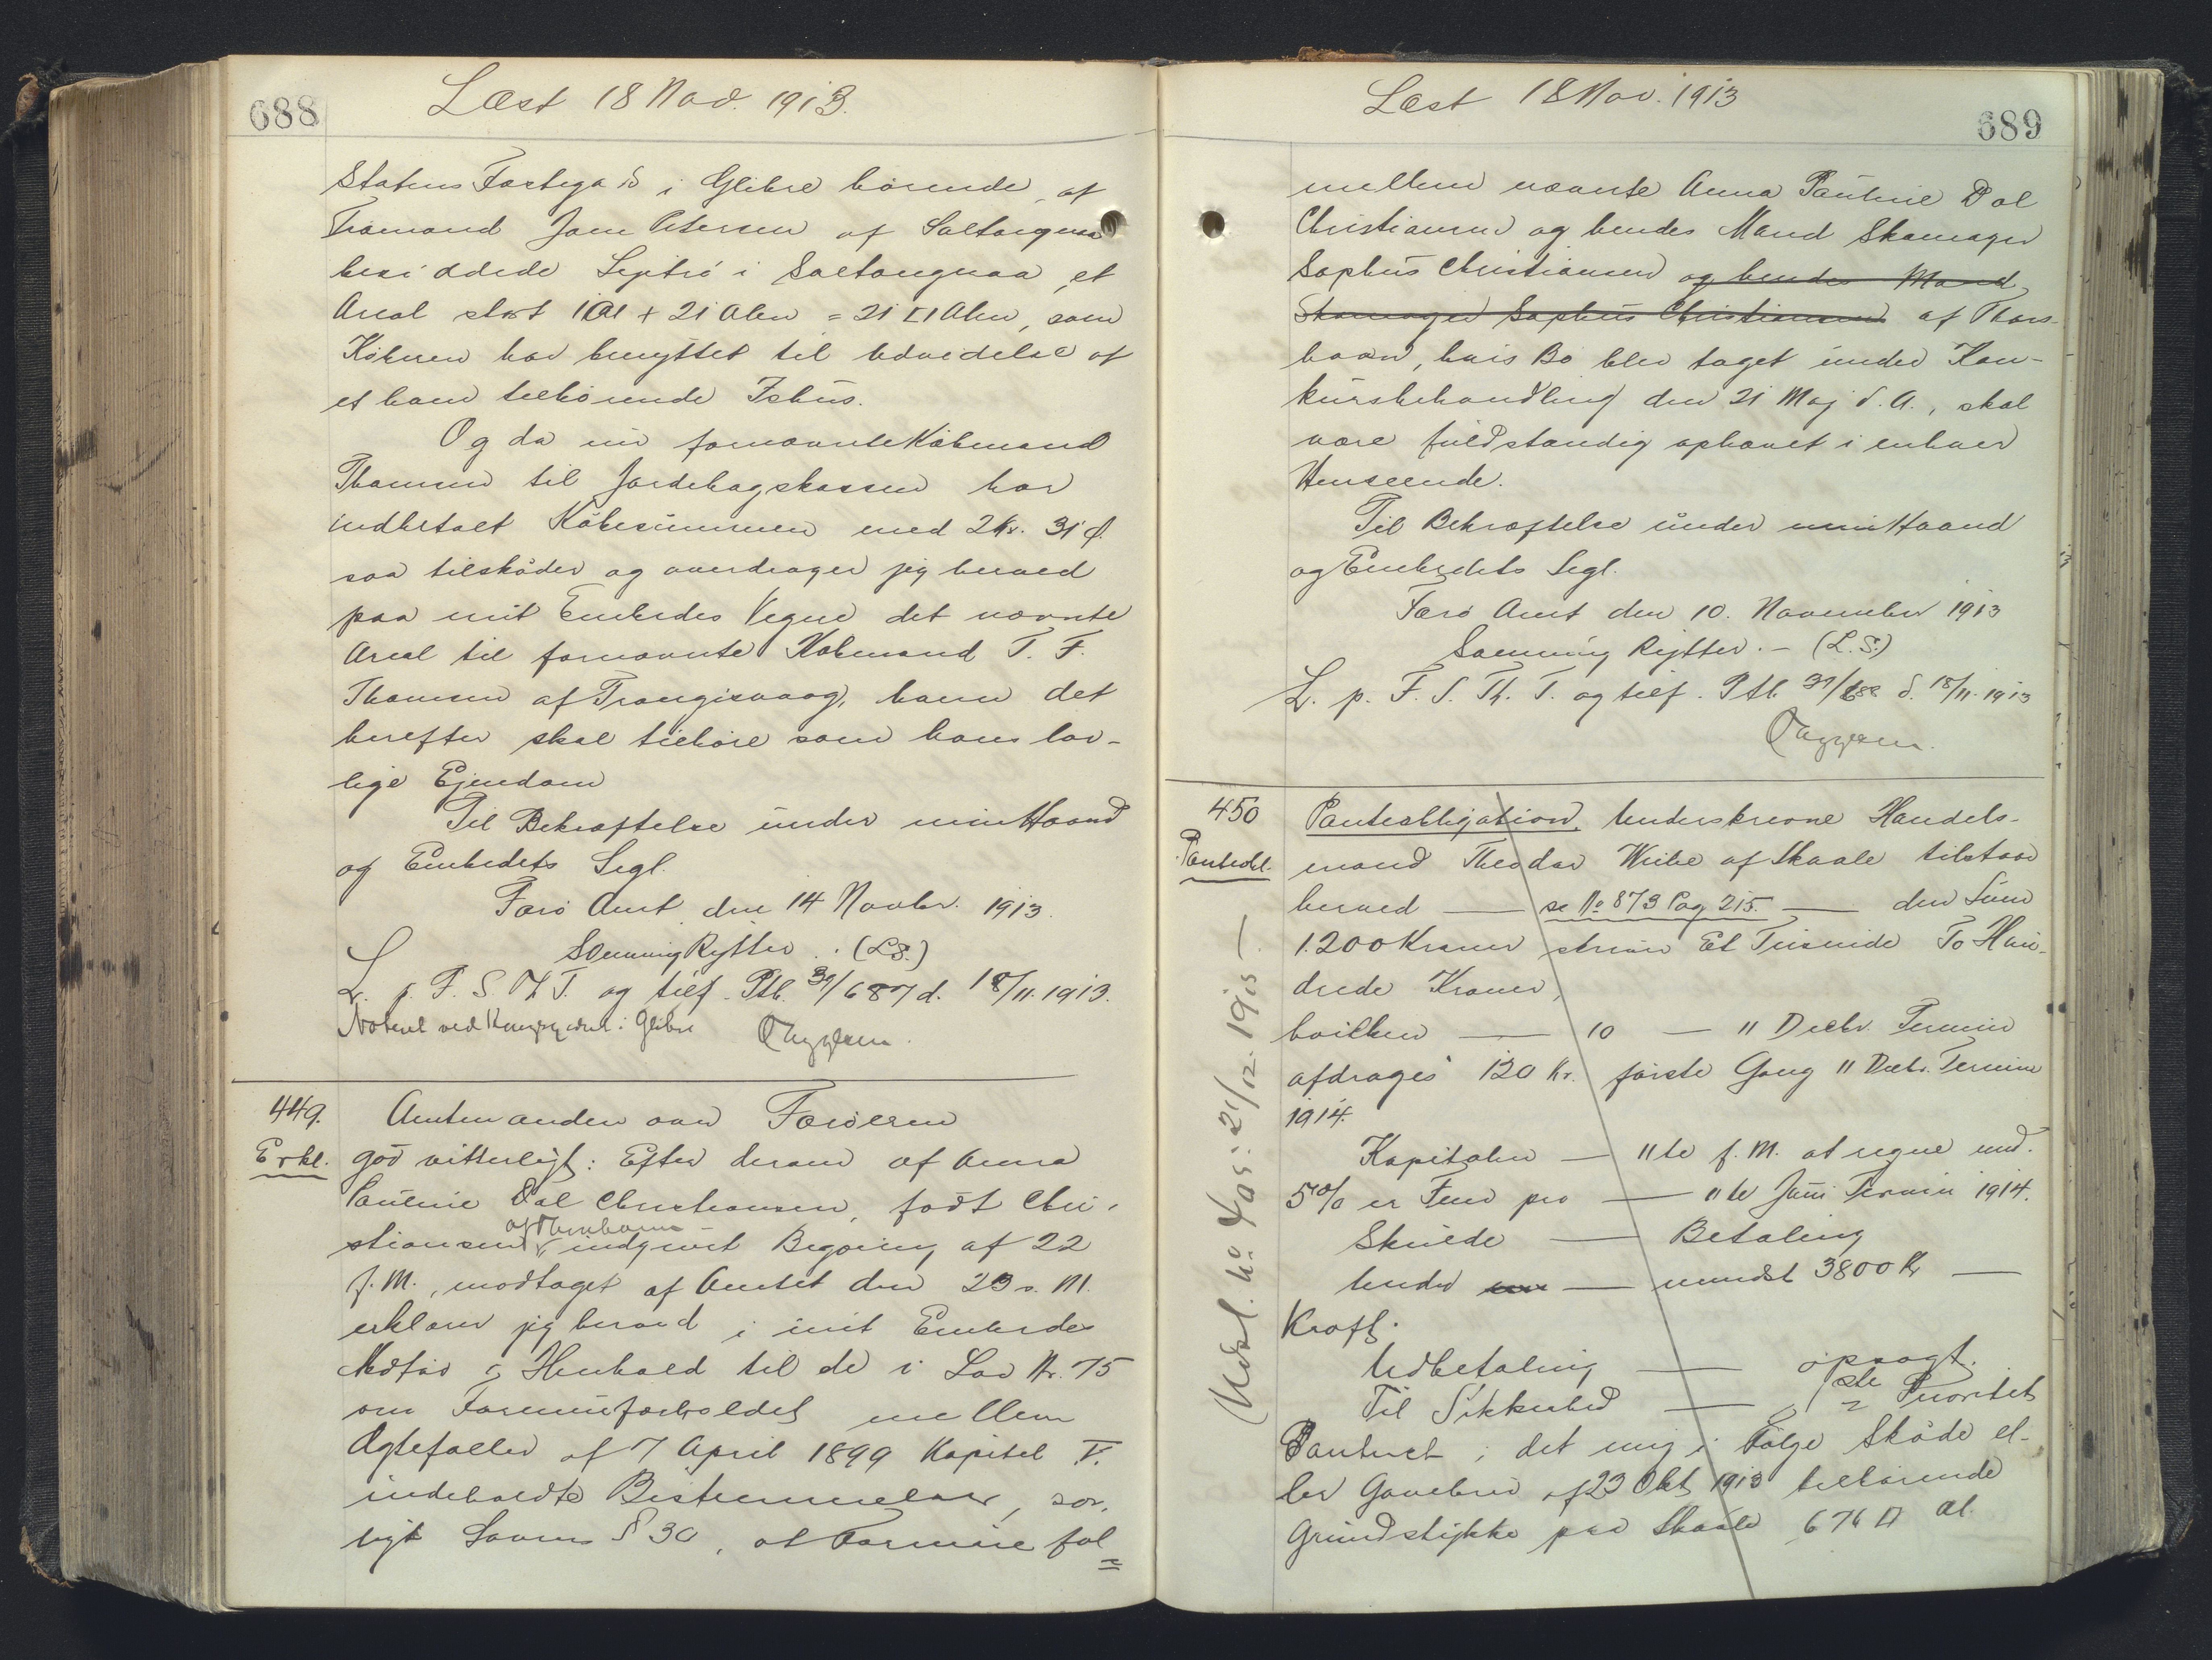 688
Læst 18 Nov. 1913.
Statens Fæstegods i Glibre hørende, af
Tromand Joen Petersen af Saltangeraa
besiddede Lejetrø i Saltangeraa, et
Areal stort 1 Al + 21 Alen = 21 □ Alen, som
Køberen har benyttet til Udvidelse af
et ham tilhørende Ishus.
Og da nu fornævnte Købmand
Thomsen til Jordebogskassen har
indbetalt Købesummen med 2 Kr. 31 Ø.
saa tilskøder og overdrager jeg herved
paa mit Embedes Vegne det nævnte
Areal til fornævnte Købmand T. F.
Thomsen af Trangisvaag, hvem det
herefter skal tilhøre som hans lov-
lige Ejendom
Til Bekræftelse under min Haand
og Embedets Segl.
Færø Amt den 14 Novbr. 1913.
Svenning Rytter. (L.S.)
L. p. F. S. Th. T. og tilf. Ptb. 39/687 d. 18/11. 1913.
Noteret ved Kongsgodset i Glibre
449.
Erkl.
Amtmanden over Færøerne
gør vitterligt: Efter derom af Anna
Pauline Dal Christiansen, født Chri-
stiansen af Thorshavn indgivet Begæring af 22
f. M., modtaget af Amtet den 23 s. M.
erklærer jeg herved i mit Embedes
Medfør og Henhold til de i Lov Nr. 75
om Formueforholdet mellem
Ægtefæller af 7 April 1899 Kapitel V.
indeholdte Bestemmelser, sær-
ligt Lovens § 30, at Formuefæl=
Læst 18 Nov. 1913
689
mellem nævnte Anna Pauline Dal
Christiansen og hendes Mand Skomager
Sophus Christiansen og hendes Mand
Skomager Sophus Christiansen af Thors-
havn, hvis Bo blev taget under Kon-
kursbehandling den 21 Maj d. A., skal
være fuldstændig ophævet i enhver
Henseende.
Til Bekræftelse under min Haand
og Embedets Segl.
Færø Amt den 10. November 1913
Svenning Rytter. - (L.S.)
L. p. F. S. Th. T. og tilf. Ptb. 39/688 d. 18/11. 1913
450
Panteobl.
Panteobligation. Underskrevne Handels-
mand Theodor Weihe af Skaale tilstaar
herved — se No 873 Pag 215. — den Sum
1.200 Kroner skriver Et Tusinde To Hun-
drede Kroner,
hvilken — 10 — 11 Decbr. Termin
afdrages 120 Kr. første Gang 11 Decbr. Termin
1914.
Kapitalen — 11te f. M. at regne med.
5 % er Fem pro — 11te Juni Termin 1914.
Skulde — Betaling
Under — mindst 3800 Kr —
Kraft.
Udbetaling — opsagt.
Til Sikkerhed — 1ste Prioritets
Panteret i det mig i Følge Skøde el-
ler Gavebrev af 23 Okt 1913 tilhørende
Grundstykke paa Skaale 676 □ Al.
(Udsl. No 403: 21/12. 1915 —